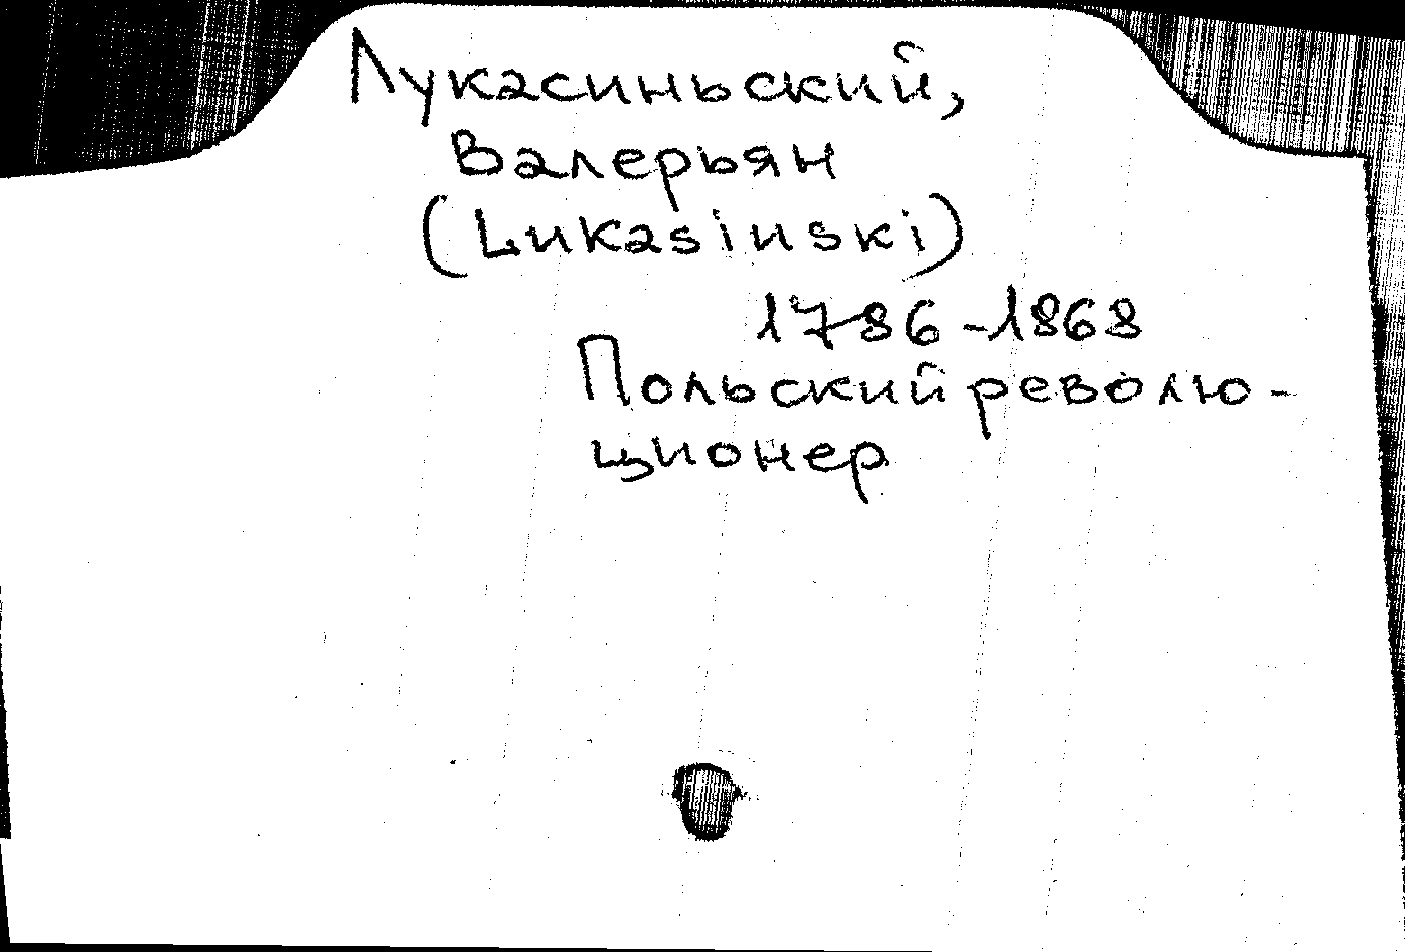 Лукасиньский,
Валерьян
(Lukasinski)
1786-1868
Польский револю-
ционер